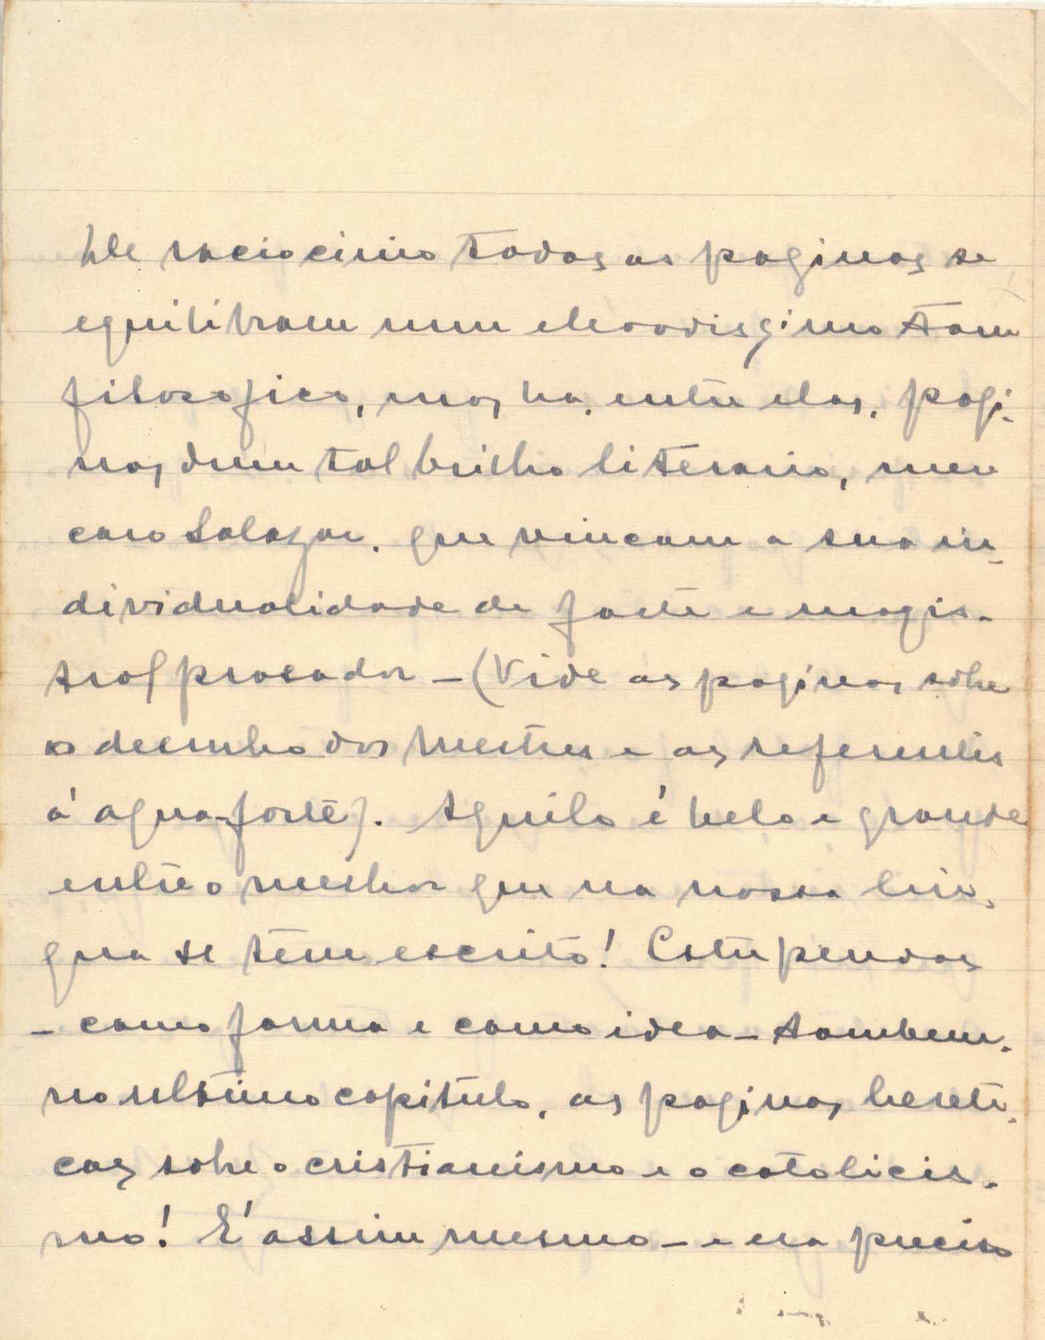 De raciocinio todas as paginas se
equilibram num elevadissimo tom
filosofico, mas ha, entre elas, pagi-
nas dum tal brilho literario, meu
caro Salazar, que vincam a sua in-
dividualidade de forte e magis-
tral prosador - (Vide as paginas sobre
o desenho dos mestres e as referentes
á agua-forte). Aquilo é belo e grande
entre o melhor que na nossa lin-
gua se tem escrito! Estupendas
- como forma e como idea - tambem,
no ultimo capitulo, as paginas hereti-
cas sobre o cristianismo e o catolicis-
mo! É assim mesmo - e era preciso